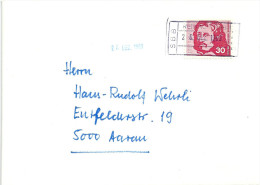 Herrn
Hans-Rudolf Wehrli
Entfelderstr. 19
5000 Aarau
30